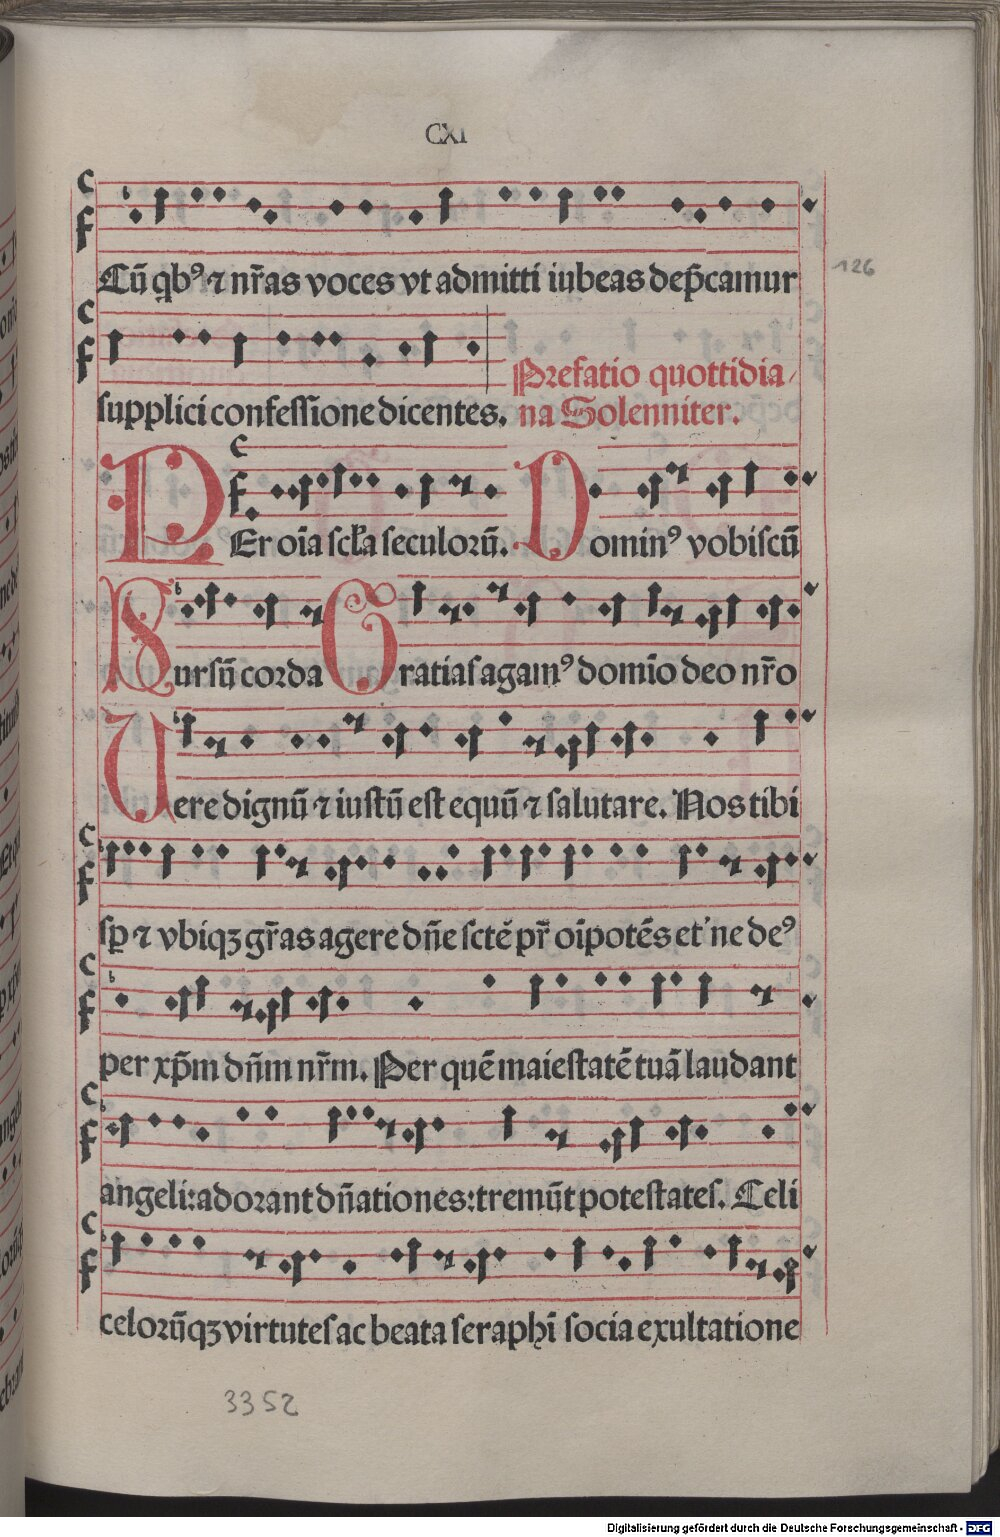 CXI
Cū qb⁹ ⁊ nr̄as voces vt admitti iubeas dep̄camur
126
Prefatio quottidia-
supplici confessione dicentes. na Solenniter.
PEr oīa scła seculorū. Domin⁹ vobiscū
Sursū corda Gratias agam⁹ domīo deo nr̄o
Uere dignū ⁊ iustū est equū ⁊ salutare. Nos tibi
sꝑ ⁊ vbiqꝫ gr̄as agere dn̄e sctē pr̄ oīpotēs et'ne de⁹
per xp̄m dn̄m nr̄m. Per quē maiestatē tuā laudant
angeli: adorant dn̄ationes: tremūt potestates. Celi
celorūqꝫ virtutes ac beata seraphī socia exultatione
3352
Digitalisierung gefördert durch die Deutsche Forschungsgemeinschaft - DFG